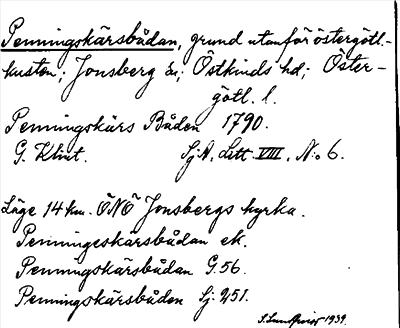 Penningskärsbådan, grund utanför östergötl.-
kusten; Jonsberg sn; Östkinds hd; Öster-
götl. l.
Penningskärs Båden 1790.
G. Klint. Sj.A. Litt. VIII. N:o 6.
Läge 14 km. ÖNÖ Jonsbergs kyrka.
Penningeskärsbådan ek.
Penningskärsbådan G.56.
Penningskärsbåden Sj. 951.
S. Lundqvist 1939.